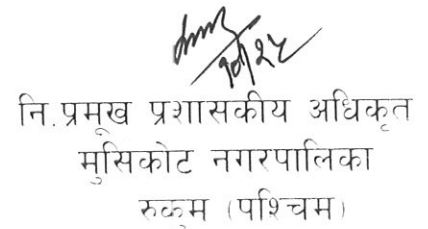 १०/२५
नि.प्रमुख प्रशासकीय अधिकृत
मुसिकोट नगरपालिका
रुकुम (पश्चिम)